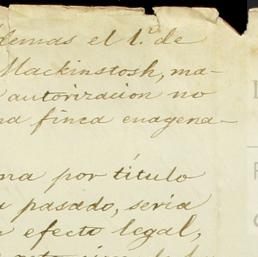 demas el 1.º de
Mackinstosh, ma-
autorizacion no
na finca enagena-
na por título
pasado, seria
efecto legal,